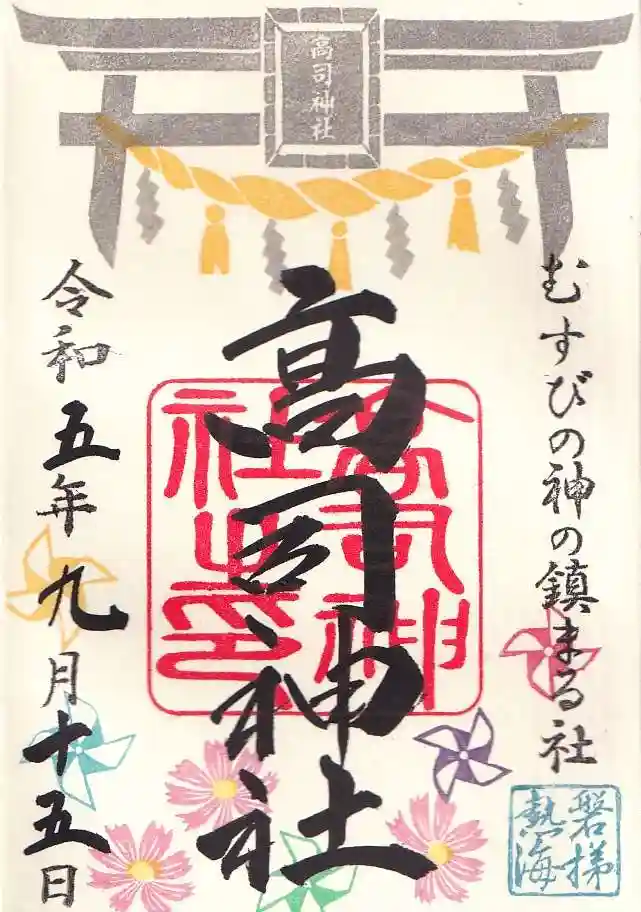 高司神社
むすびの神の鎮まる社
磐梯
熱海
高司神社
高司神
社之印
令和五年九月十五日